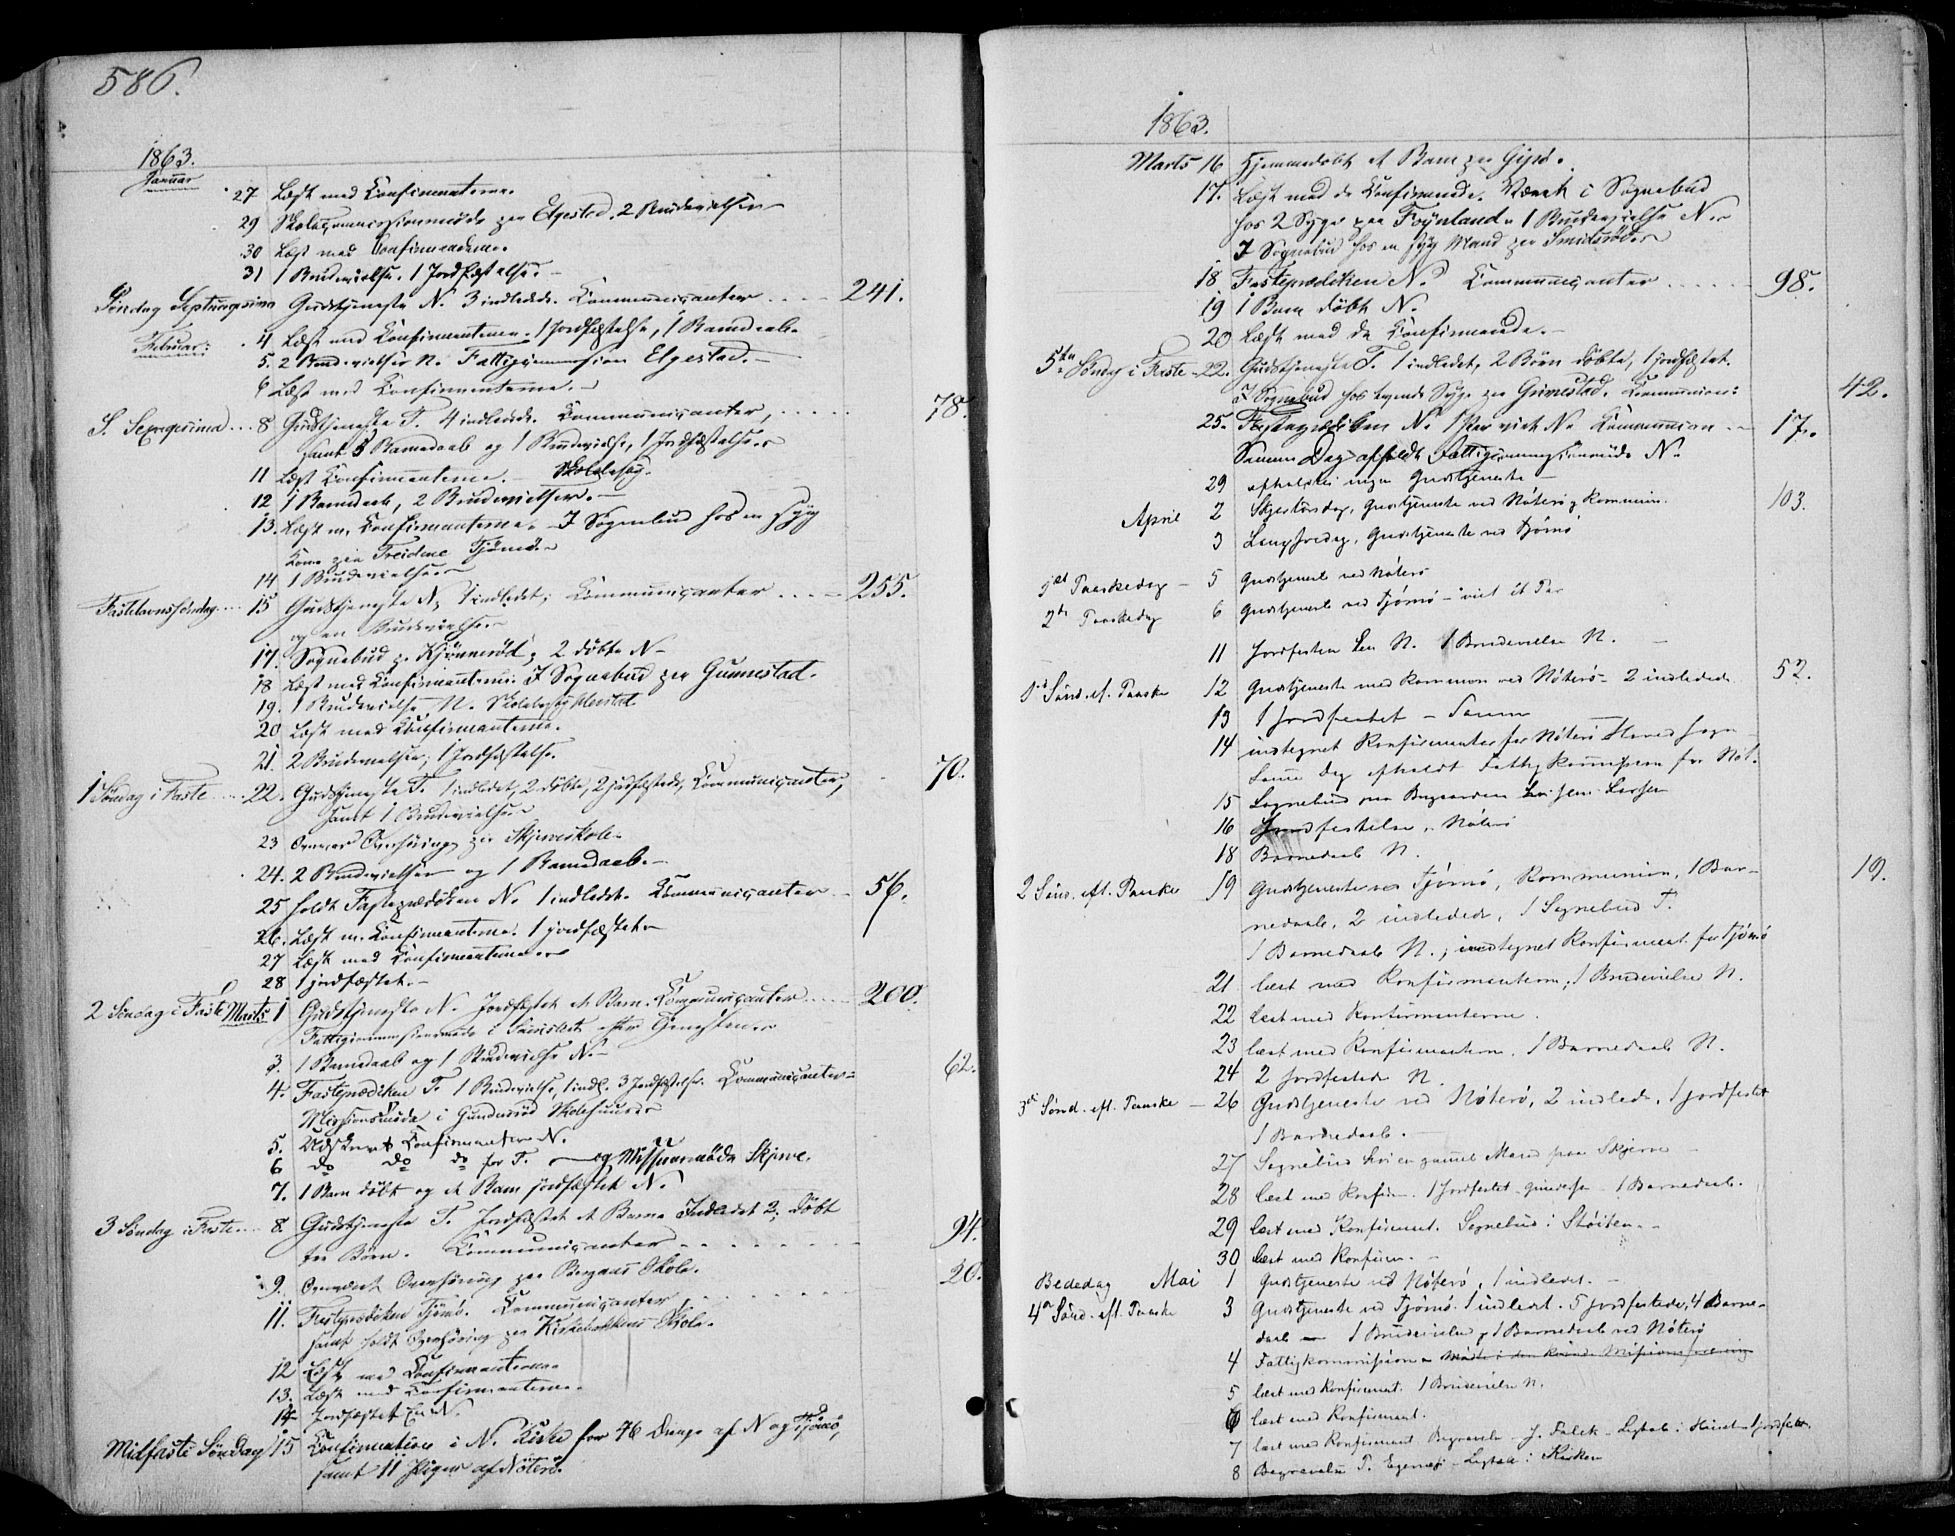 586.
1863.
Januar
27 Læst med Confirmanterne.
29 Skolecommissionsmøde paa Elgestad. 2 Brudevielser
30 Læst med Confirmanterne.
31 1 Brudevielse. 1 Jordfæstelse.
Søndag Septuagesima Gudstjeneste N. 3 indledede. Communicanter .... 241.
Februar: 4. Læst med Confirmanterne. 1 Jordfæstelse, 1 Barnedaab.
5. 2 Brudevielser N. Fattigcommission Elgestad.
6 Læst med Confirmanterne.
S. Sexagesima ... 8 Gudstjeneste T. 4 indledede. Communicanter, ..... 78.
samt 3 Barnedaab og 1 Brudevielse, 1 Jordfæstelse.
11 Læst Confirmanterne. Skolebesøg.
12 1 Barnedaab, 2 Brudevielser.
13. Læst m. Confirmanterne. I Sognebud hos en syg
Kone paa Treidene Tjømø.
14 1 Brudevielse
Fastelavnssøndag ... 15 Gudstjeneste N, 1 indledet; Communicanter .... 255.
og en Brudevielse.
17. Sognebud p. Kjønnerød; 2 døbte N.
18 Læst med Confirmanterne. I Sognebud paa Gunnestad.
19. 1 Brudevielse N. Skolebesøg
20 Læst med Confirmanterne.
21. 2 Brudevielser; 1 Jordfæstelse.
1 Søndag i Faste .... 22. Gudstjeneste T. 1 indledet, 2 døbte, 2 jordfæstede, Communicanter, 70.
samt 1 Brudevielse.
23 Overhøring paa Skjerveskole.
24. 2 Brudevielser og 1 Barnedaab.
25 holdt Fasteprædiken N. 1 indledet. Communicanter .. 56.
26. Læst m. Confirmanterne. 1 jordfæstet.
27 Læst med Confirmanterne.
28 1 jordfæstet.
2 Søndag i Faste Marts 1 Gudstjeneste N. Jordfæstet et Barn. Communicanter .... 200.
Fattigcommissionsmøde i efter Tjenesten.
3. 1 Barnedaab og 1 Brudevielse N.
4. Fasteprædiken T. 1 Brudevielse, 1 indl. 3 Jordfæstelser. Communicanter 62.
Missionsmøde i Gunderød Skolehuus
5. Udskrevet Confirmanter N.
6 do do do for T. og Missionsmøde Skjerve.
7. 1 Barn døbt og et Barn jordfæstet N.
3 Søndag i Faste .. 8 Gudstjeneste T. Jordfæstet et Barn. Indledet 2; døbt
tre Børn. Communicanter ........ 94.
9. Overhøring paa Bergans Skole. 20.
11. Fasteprædiken Tjømø. Communicanter ........
samt holdt Overhøring paa Kirkebakkens Skole.
12 Læst med Confirmanterne
13. Læst med Confirmanterne.
14 Jordfæstet En N.
Midfaste Søndag 15 Confirmation i N. Kirke for 46 Drenge af N og Tjømø,
samt 11 Piger af Nøterø.
1863.
Marts 16 Hjemmedøbt et Barn paa Gipø.
17. Læst med de Confirmerede. Været i Sognebud
hos 2 Syge paa Føynland. 1 Brudevielse N.
I Sognebud hos en syg Mand paa Smidsrød.
18. Fasteprædiken N. Communicanter ...... 98.
19 1 Barn døbt N.
20 Læst med de Confirmerede.
5te Søndag i Faste - 22. Gudstjeneste T. 1 indledet, 2 Børn døbte, 1 jordfæstet.
I Sognebud hos tvende Syge paa Grimestad. Communion: 42.
25. Fasteprædiken N. 1 Par viet N. Communion .. 17.
Samme Dag afholdt Fattigcommissionsmøde N.
29 afholdtes ingen Gudstjeneste
April 2 Skjertorsdag, Gudstjeneste ved Nøterø, Kommunion. 103.
3 Langfredag, Gudstjeneste ved Tjømø
1ste Paaskedag - 5 Gudstjeneste ved Nøterø
2den Paaskedag 6 Gudstjeneste ved Tjømø - viet et Par
11 Jordfestet En N. 1 Brudevielse N.
1ste Sønd. ef. Paaske 12 Gudstjeneste med Kommun. ved Nøterø - 2 indledede 52.
13 1 Jordfestet -
14 indtegnet Konfirmanter for Nøterø Hovedsogn
Samme Dag afholdt Fattigkommission for Nøt.
15 Sognebud Larsen
16 Jordfestelse, Nøterø
18 Barnedaab N.
2 Sønd. eft. Paaske 19 Gudstjeneste ved Tjømø, Kommunion, 1 Bar- 19.
nedaab, 2 indledede, 1 Sognebud T.
1 Barnedaab N.; indtegnet Konfirmant. for Tjømø
21 læst med Konfirmanterne; 1 Brudevielse N.
22 læst med Konfirmanterne.
23 læst med Konfirmanterne, 1 Barnedaab N.
24 2 Jordfestede N.
3die Sønd. eft. Paaske - 26 Gudstjeneste ved Nøterø, 2 indlede, 1 jordfestet
1 Barnedaab.
27 Sognebud hos en gammel Mand paa Skjerve
28 læst med Konfirm. 1 Jordfestet 1 Barnedaab.
29 læst med Konfirmant. Sognebud i Støiten.
30 læst med Konfirm.
Bededag Mai 1 Gudstjeneste ved Nøterø, 1 indledet.
4de Sønd. eft. Paaske 3 Gudstjeneste ved Tjømø. 1 indledet. 5 jordfestede, 4 Barne-
daab - 1 Brudevielse, 1 Barnedaab ved Nøterø
4 Fattigkommission
5 læst med Konfirmant. 1 Brudevielse N.
6 læst med Konfirmant.
7 læst med Konfirmant Begravelse J. Falck - Ligtale i Huset - 1 jordfestet
8 Begravelse P. Egenæs - Ligtale i Kirken